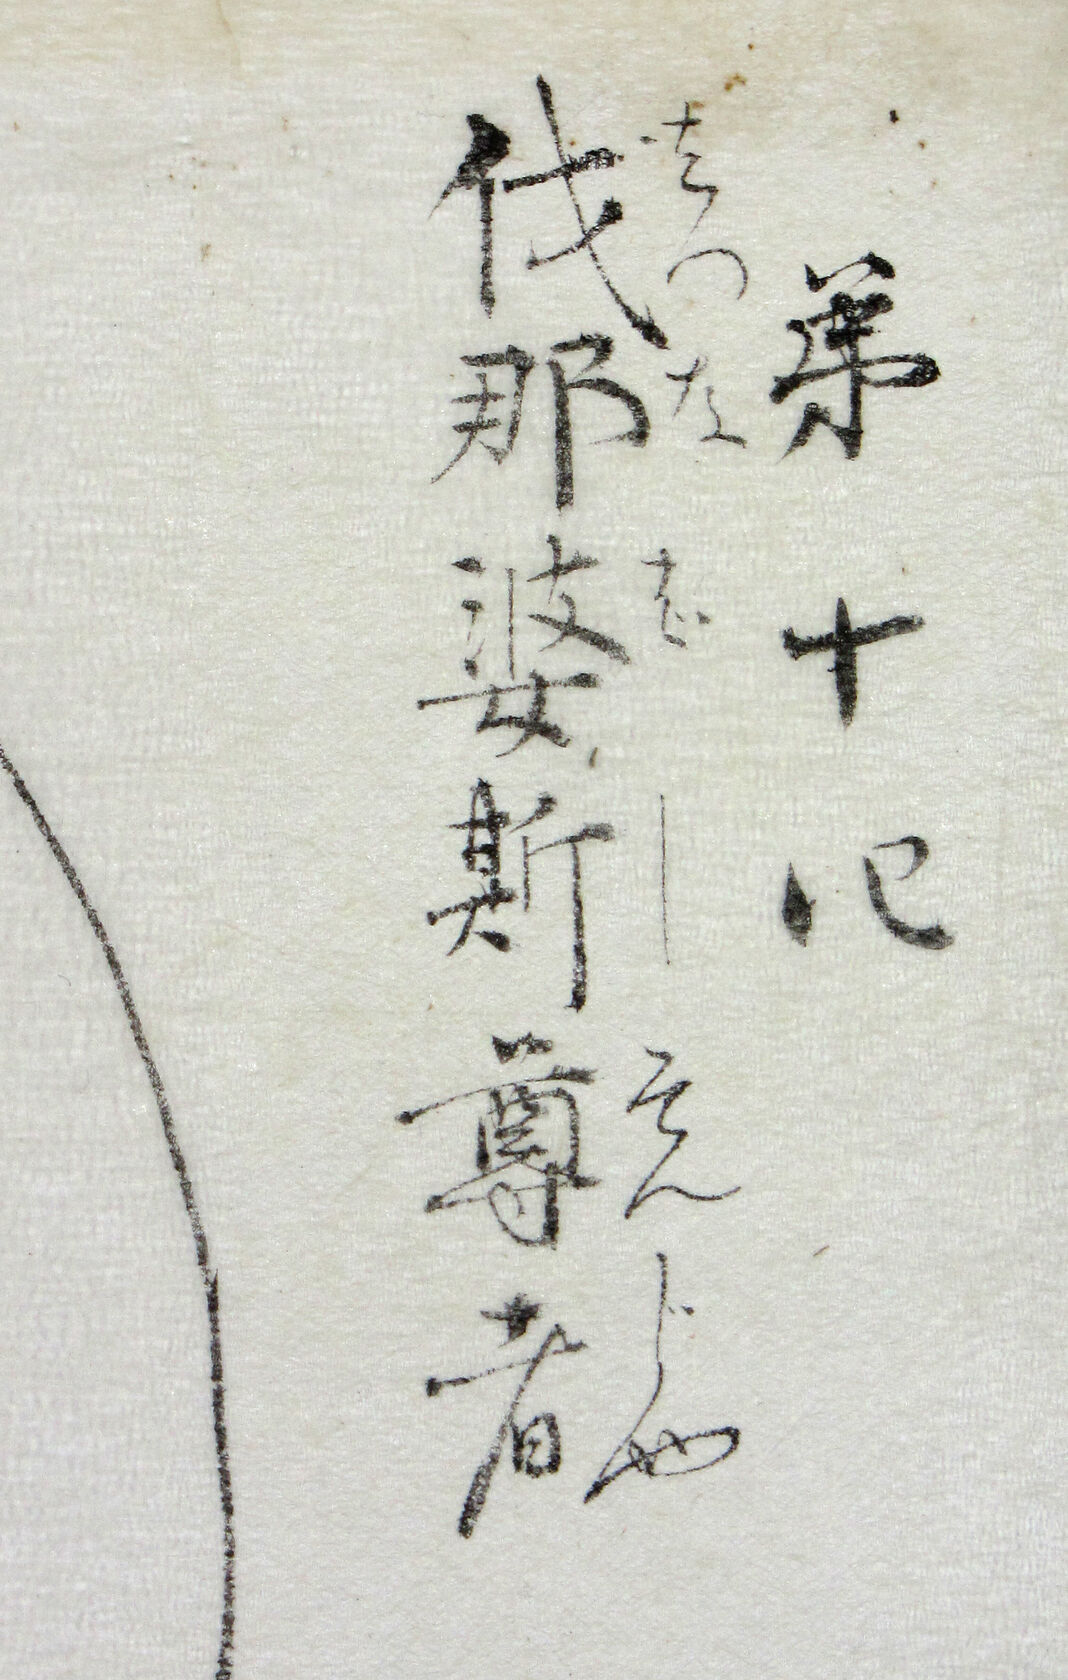 第十四
ばつなばしそんじや
伐那婆斯尊者